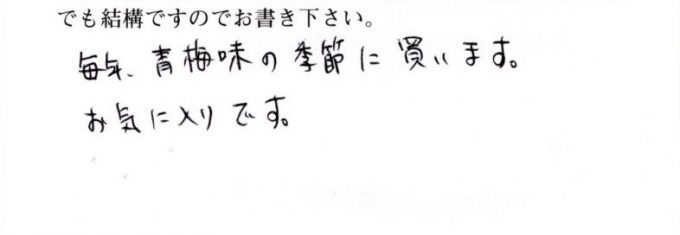 でも結構ですのでお書き下さい。
毎年、青梅味の季節に買います。
お気に入りです。